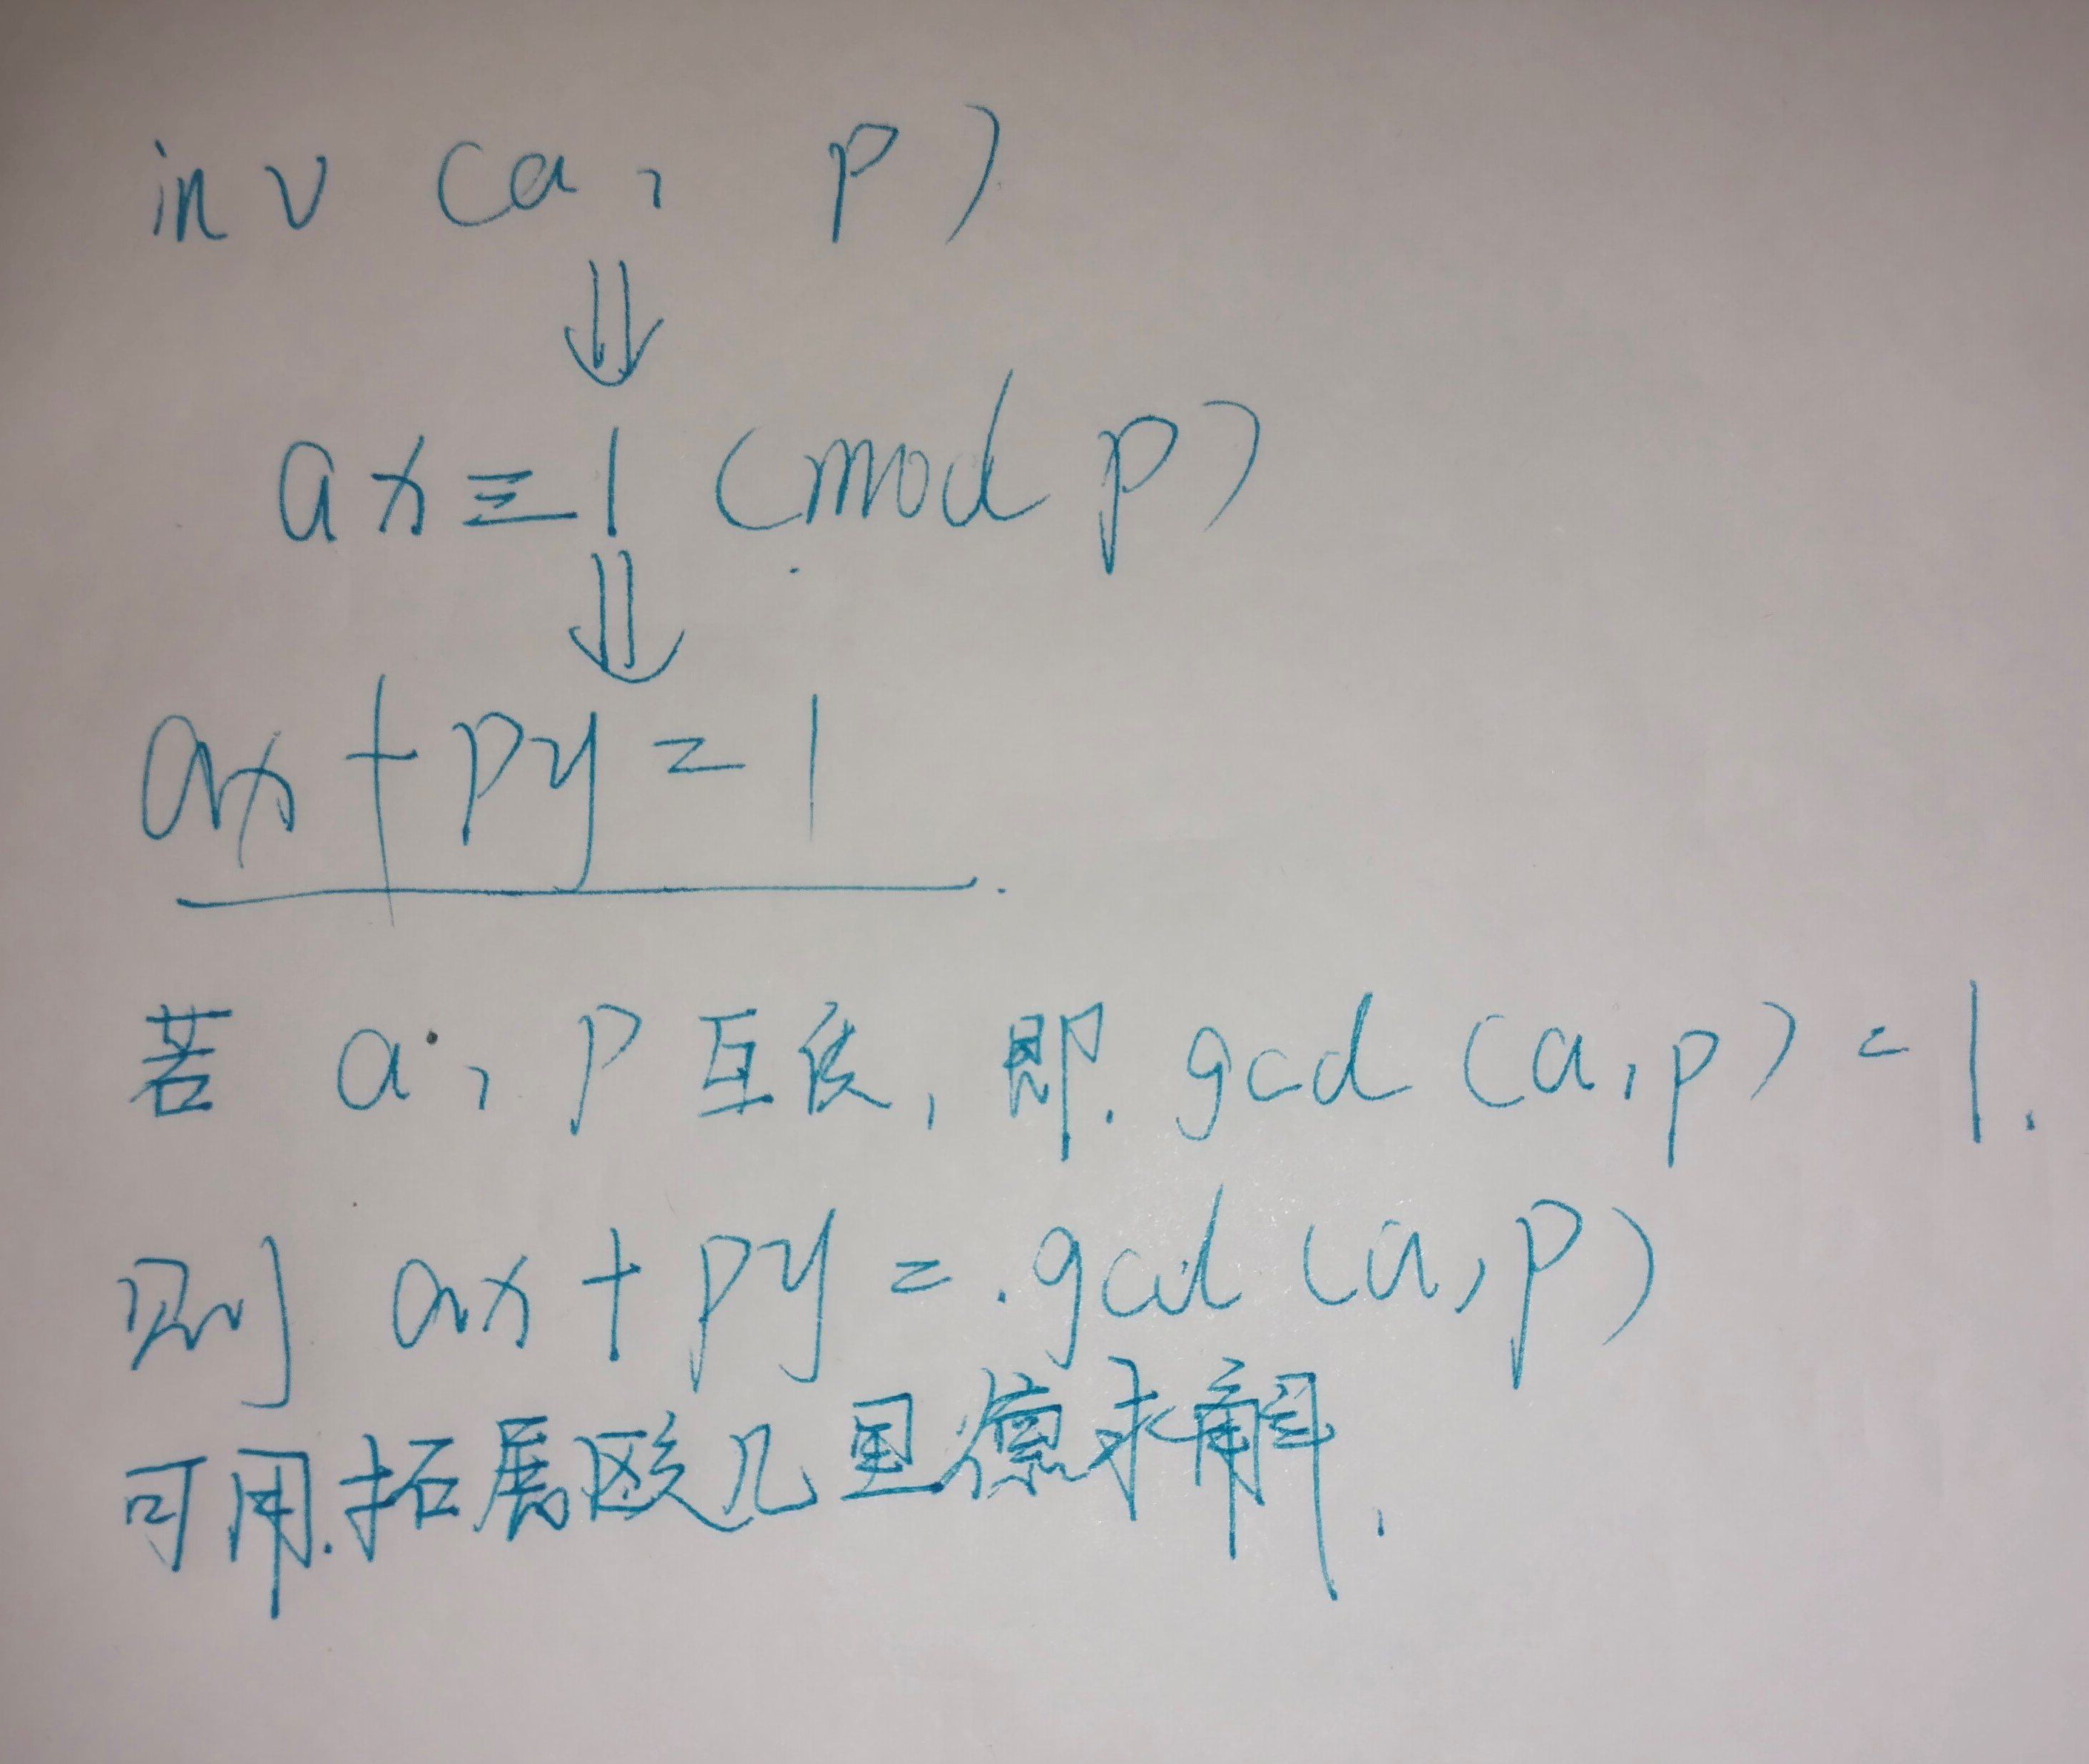 inv (a, p)
⇓
ax ≡ 1 (mod p)
⇓
ax + py = 1
若 a, p 互质, 即. gcd (a, p) = 1.
则 ax + py = . gcd (a, p)
可用.拓展欧几里德求解.